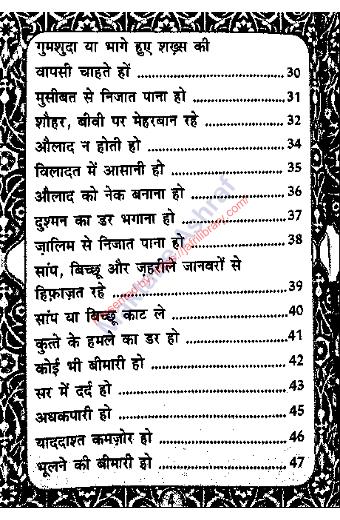 गुमशुदा या भागे हुए शख़्स की
वापसी चाहते हों ........................................ 30
मुसीबत से निजात पाना हो ........................ 31
शौहर, बीवी पर मेहरबान रहे ..................... 32
औलाद न होती हो ..................................... 34
विलादत में आसानी हो .............................. 35
औलाद को नेक बनाना हो ......................... 36
दुश्मन का डर भगाना हो ........................... 37
ज़ालिम से निजात पाना हो ......................... 38
सांप, बिच्छू और ज़हरीले जानवरों से
हिफ़ाज़त रहे .............................................. 39
सांप या बिच्छू काट ले .............................. 40
कुत्ते के हमले का डर हो ........................... 41
कोई भी बीमारी हो ..................................... 42
सर में दर्द हो .............................................. 43
अधकपारी हो .............................................. 45
याददाश्त कमज़ोर हो .................................. 46
भूलने की बीमारी हो ................................... 47